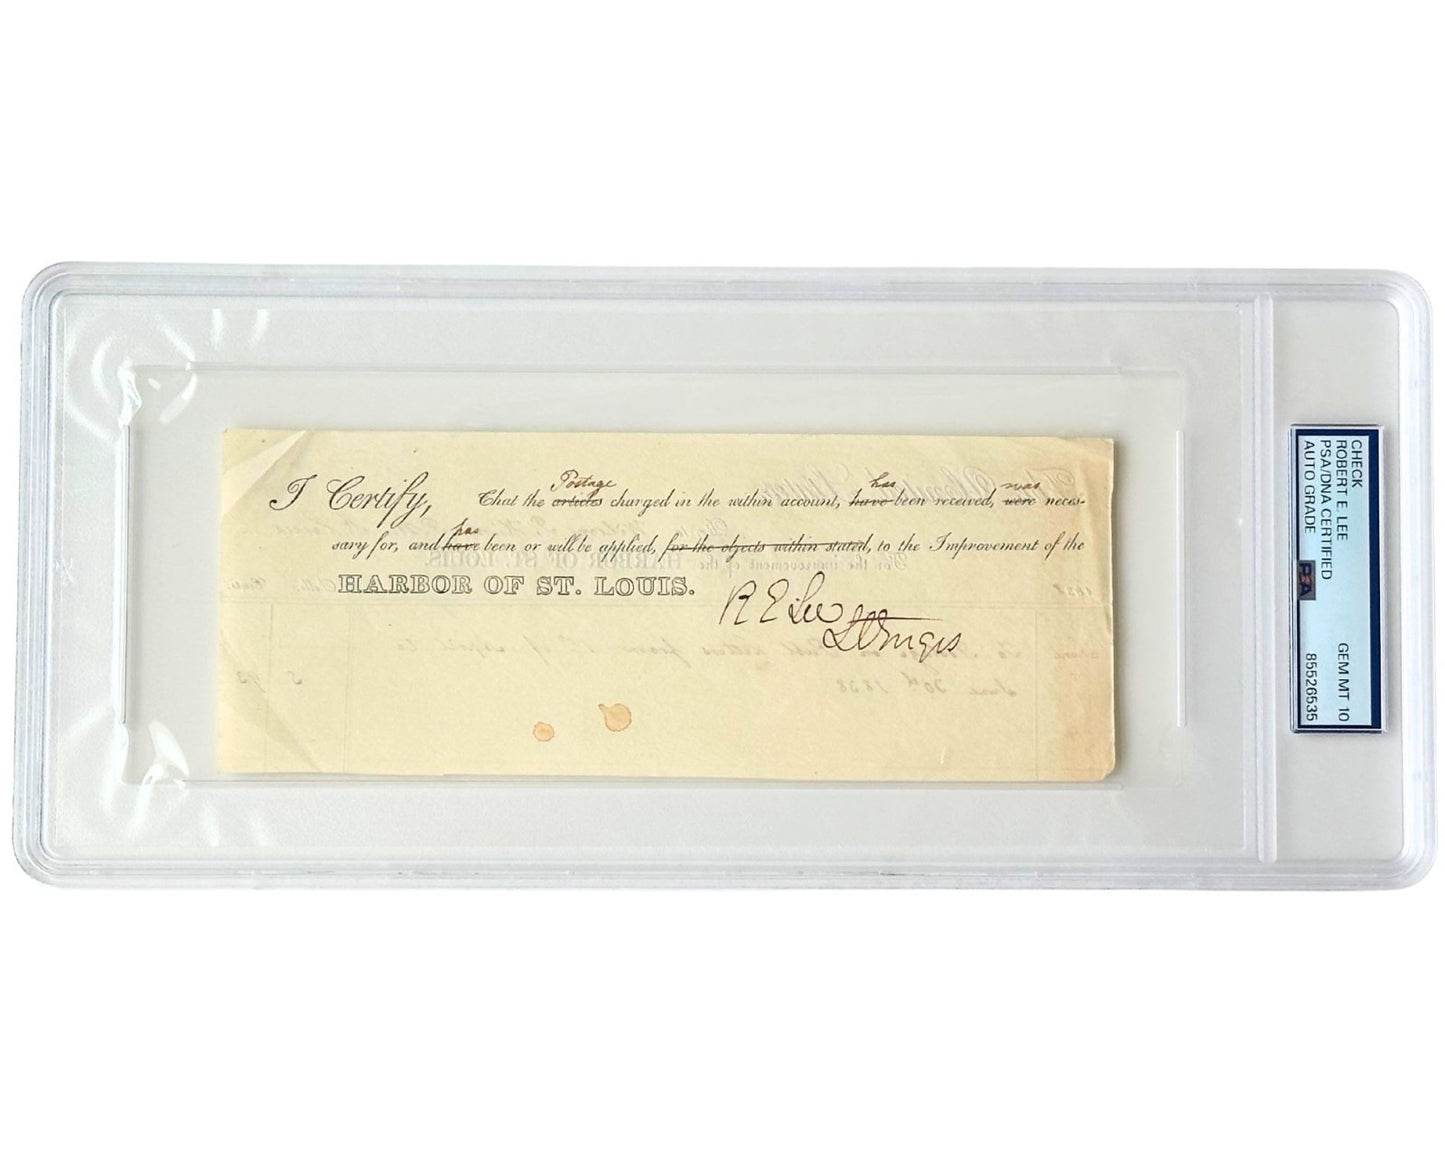 Postage has was
I Certify, That the articles charged in the within account, have been received, were neces-
has
sary for, and have been or will be applied, for the objects within stated, to the Improvement of the
HARBOR OF ST. LOUIS.
R E Lee
For the improvement of the HARBOR OF ST. LOUIS.
June 30th 1838
CHECK
ROBERT E. LEE
PSA/DNA CERTIFIED
AUTO GRADE
PSA
GEM MT 10
85526535